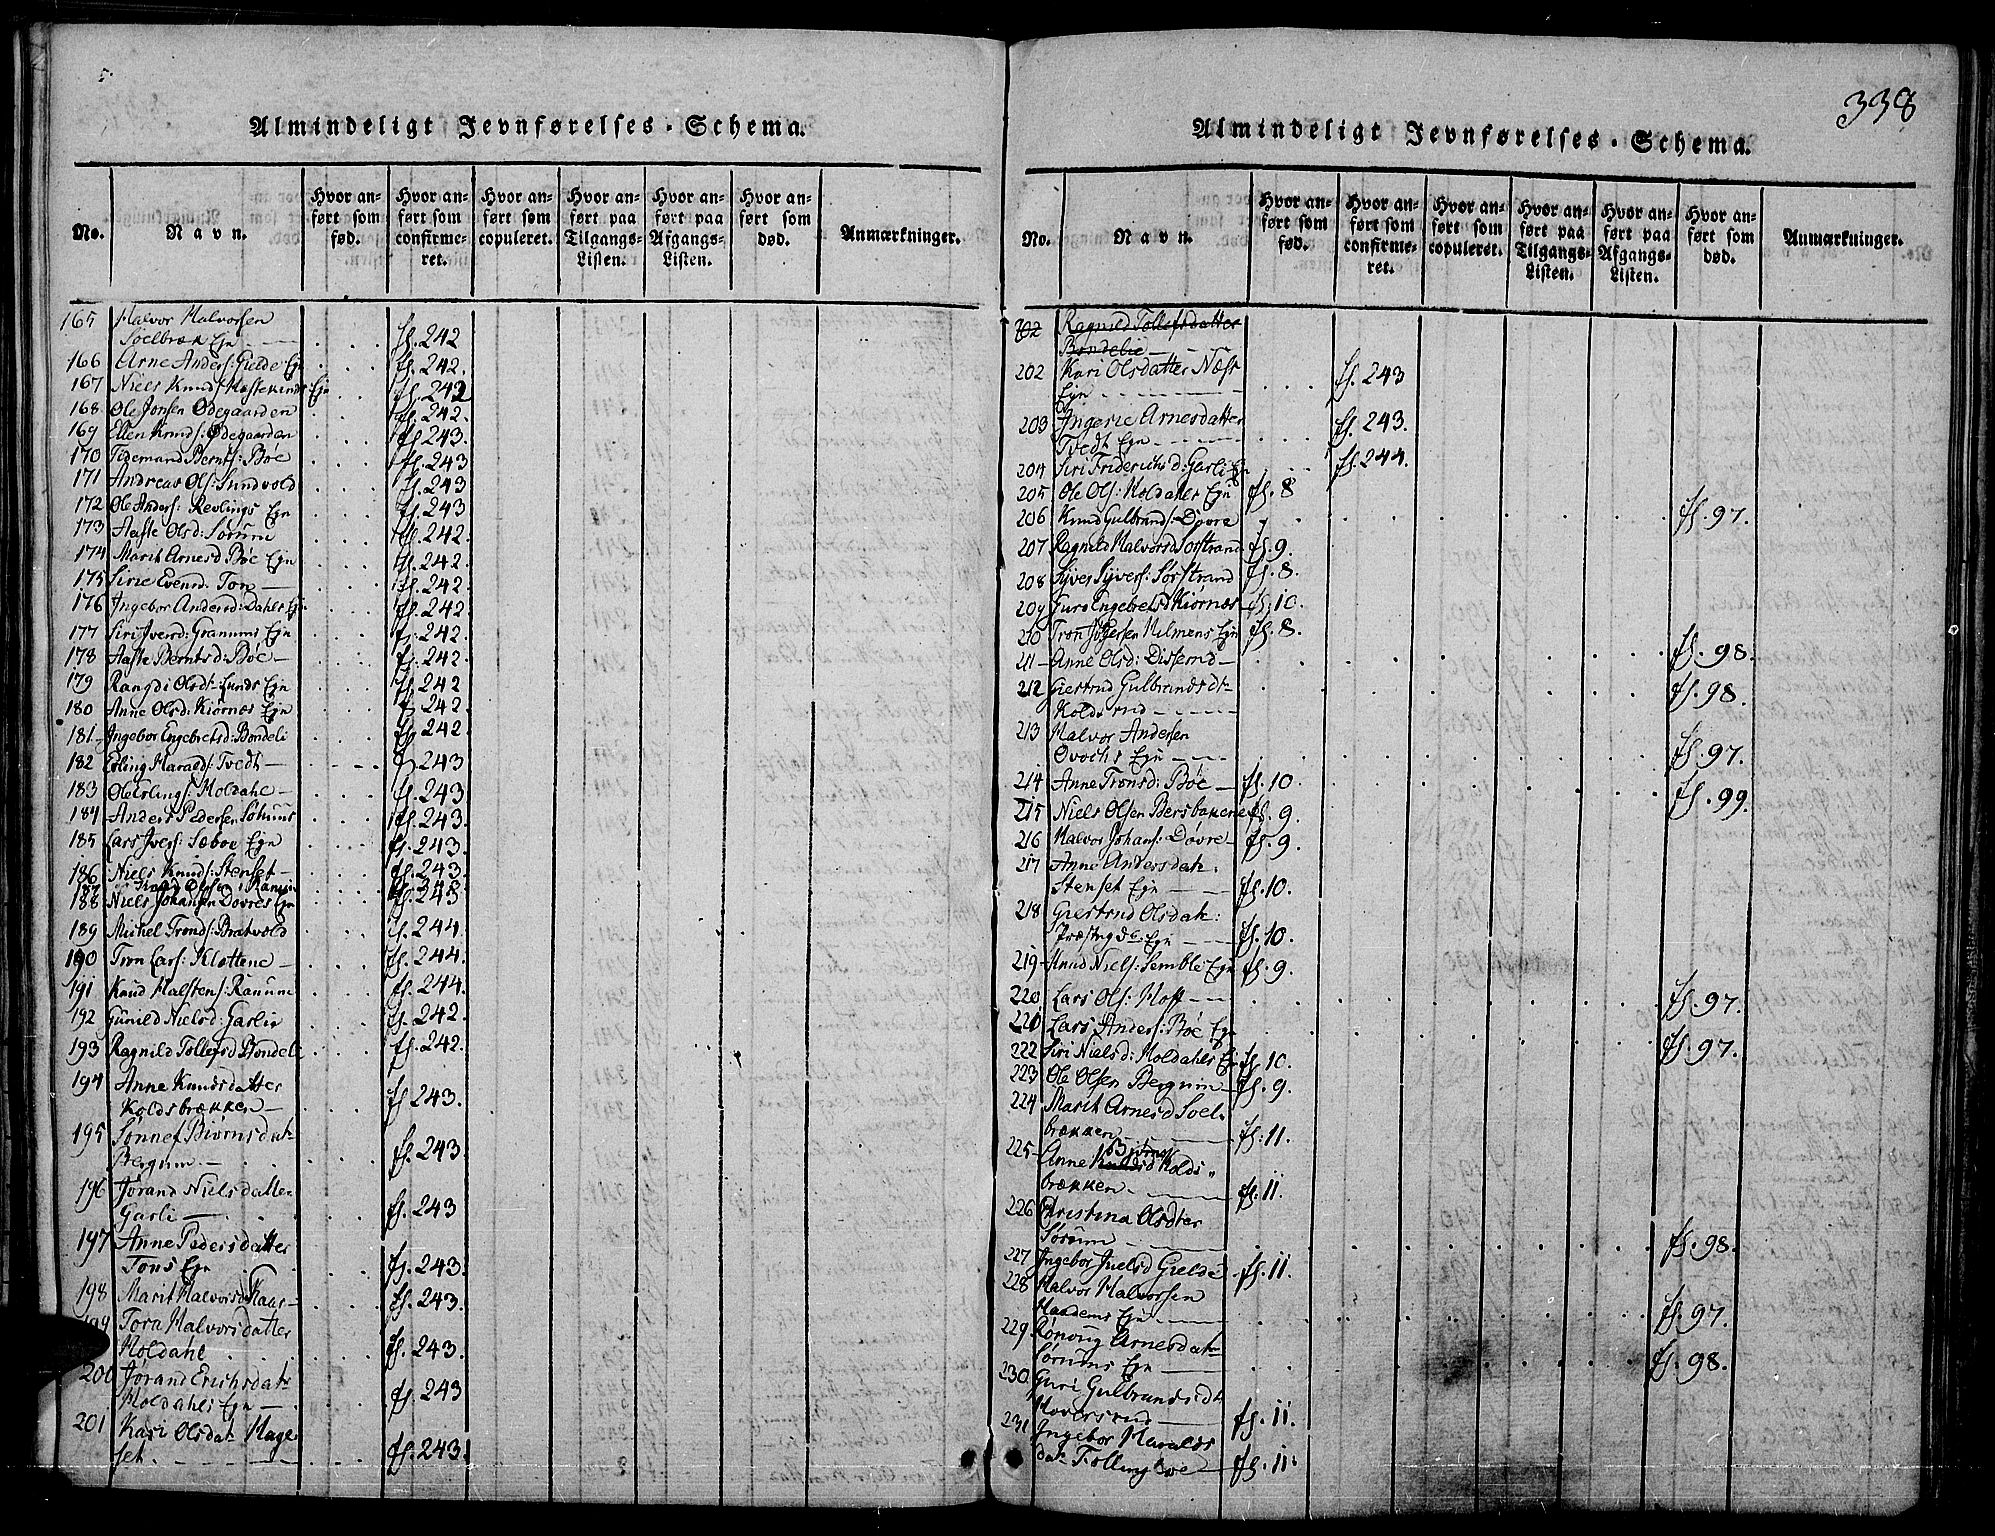 Almindeligt Jevnførelses-Schema.
No. Navn. Hvor anført som fød. Hvor anført som confirmeret. Hvor anført som copuleret. Hvor anført paa Tilgangs-Listen. Hvor anført paa Afgangs-Listen. Hvor anført som død. Anmærkninger.
165 Halvor Halvorsen
Soelbræk Ejn fs. 242
166 Arne Anders: Gielde Ejn fs. 242.
167 Niels Knuds: Ejn fs. 242
168 Ole Jonsen Ødegaarden fs. 242.
169 Ellen Knuds: Ødegaarden fs. 243.
170 Tidemand Bernts: Bøe fs. 243
171 Andreas Ols: Sundvold fs. 243
172 Ole Anders: Revlings Ejn fs. 243
173 Aaste Olsd: Sørum fs. 242.
174 Marit Arnesd Bøe Ejn fs. 242.
175 Sirie Evensd: Ton fs. 242
176 Ingebor Andersd: Dahls Ejn fs. 242
177 Siri Iversd: Granums Ejn fs. 242.
178 Aaste Berntsd: Bøe fs. 242.
179 Rangdi Olsdt Lunds Ejn fs. 242
180 Anne Olsd: Kiørnæs Ejn fs. 242.
181 Ingebor Engebretsd: Bondeli fs. 242
182 Erling Haralds: Tvedt fs. 243
183 Ole Erlings: Holdahl fs. 243
184 Anders Pedersen fs. 243.
185 Lars Ivers: Sæboe Ejn fs. 243.
186 Niels Knuds: Stenset fs. 243.
187 Knud Olsen Ranum fs. 243
188 Niels Johansen Dovres Ejn
189 Michel Tronds: Bratvold fs. 244.
190 Tron Lars: Kløttene fs. 244.
191 Knud Halstens: Ranum fs. 244.
192 Gunild Nielsd: Garlie fs. 242.
193 Ragnild Tollefsd Bondeli fs. 242.
194 Anne Knudsdatter
Koldsbrækken fs. 243.
195 Sønnef Biørnsdat
Bergum fs. 243.
196 Jørand Nielsdatter
Garli fs. 243
197 Anne Pedersdatter
Tons Ejn fs. 243.
198 Marit Halvorsd Haar fs. 243.
199 Tora Halvorsdatter
Holdahl fs. 243.
200 Jørand Erichsdat
Holdahls Ejn fs. 243
201 Kari Olsdat Hage
set fs. 243.
338
Almindeligt Jevnførelses-Schema.
No. Navn. Hvor anført som fød. Hvor anført som confirmeret. Hvor anført som copuleret. Hvor anført paa Tilgangs-Listen. Hvor anført paa Afgangs-Listen. Hvor anført som død. Anmærkninger.
202 Ragnild Tollefsdatter
Bondelie
202 Kari Olsdatter Næst
Ejn fs. 243
203 Ingerie Arnesdatter
Tvedt Ejn fs. 243.
204 Siri Friderichsd: Garli Ejn fs. 244.
205 Ole Ols: Holdahls Ejn fs. 8
206 Knud Gulbrands: Dovre fs. 97.
207 Ragnild Halvorsd Sørstrand fs. 9.
208 Syver Syvers: Sørstrand fs. 8.
209 Guro Engebretsd Kiørnæs fs. 10.
210 Tron Hilmens Ejn fs. 8.
211 Anne Olsd: Disserud fs. 98.
212 Giertrud Gulbrandsdt
Koldsrud fs. 98.
213 Halvor Andersen
Ejn fs. 97.
214 Anne Tronsd: Bøe fs. 10. fs. 99.
215 Niels Olsen Bersbakene fs. 9.
216 Halvor Johans: Dovre fs. 9.
217 Anne Andersdat
Stenset Ejn fs. 10.
218 Giertrud Olsdat:
Præstegd: Ejn fs. 10.
219 Knud Niels: Semble Ejn fs. 9.
220 Lars Ols: Hoff fs. 97.
220 Lars Anders: Bøe Ejn fs. 97.
222 Siri Nielsd: Holdahls Ejn fs. 10.
223 Ole Olsen Bergum fs. 9.
224 Marit Arnesd Soel
brækken fs. 11.
225 Anne Knudsd Kolds
brækken fs. 11.
226 Christina Olsdter
Sørum fs. 98.
227 Ingebor Juelsd Gielde fs. 11.
228 Halvor Halvorsen
Haadems Ejn fs. 97.
229 Rønoug Arnesdat
Sørums Ejn fs. 98.
230 Guri Gulbrandsdt
Hoversrud fs. 11.
231 Ingebor Haralds
dat Follingboe fs. 11.